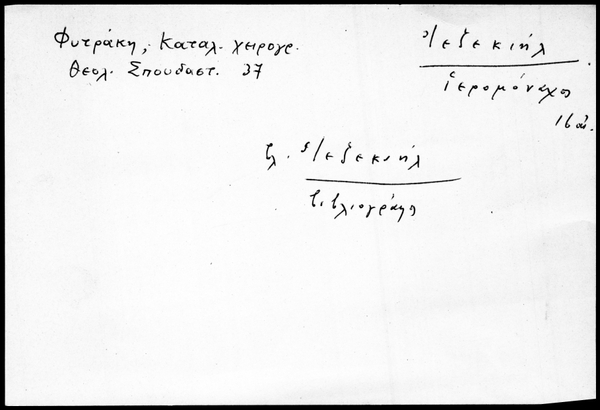 Φυτράκη, Καταλ. χειρογρ.
Θεολ. Σπουδαστ. 37
Ἰεζεκιήλ
ἱερομόναχος
16 αἰ.
βλ. Ἰεζεκιήλ
βιβλιογράφος